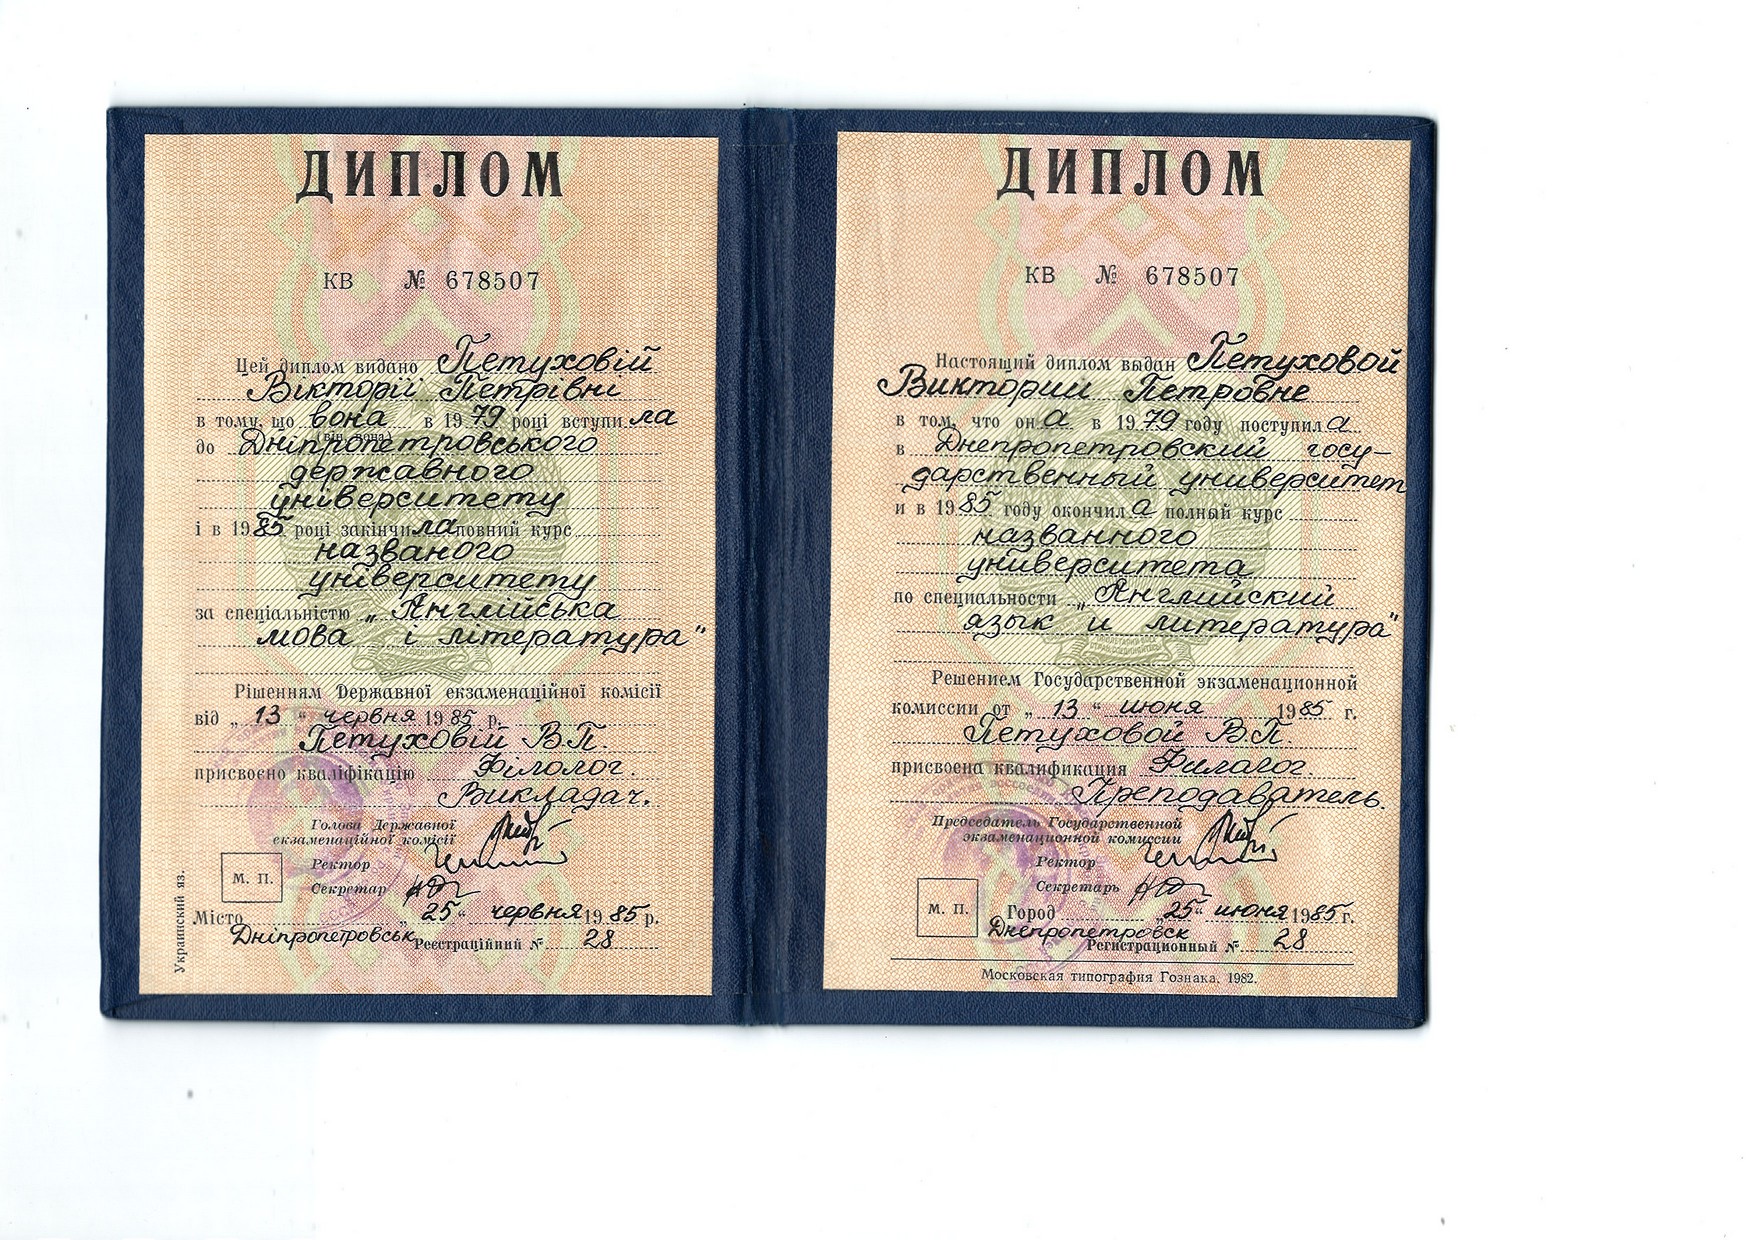 ДИПЛОМ
КВ № 678507
Цей диплом видано Петуховій
Вікторії Петрівні
в тому, що вона в 1979 році вступила
(він, вона)
до Дніпропетровського
державного
університету
і в 1985 році закінчила повний курс
названого
університету
за спеціальністю „Англійська
мова і література"
Рішенням Державної екзаменаційної комісії
від „13" червня 1985 р.
Петуховій В.П.
присвоєно кваліфікацію Філолог.
Викладач.
Голова Державної
екзаменаційної комісії
Ректор
М. П.
Секретар
Місто „25" червня 1985 р.
Дніпропетровськ
Реєстраційний № 28
Украинский яз.
ДИПЛОМ
КВ № 678507
Настоящий диплом выдан Петуховой
Виктории Петровне
в том, что она в 1979 году поступила
в Днепропетровский госу-
дарственный университет
и в 1985 году окончила полный курс
названного
университета
по специальности „Английский
язык и литература"
Решением Государственной экзаменационной
комиссии от „13" июня 1985 г.
Петуховой В.П.
присвоена квалификация Филолог.
Преподаватель.
Председатель Государственной
экзаменационной комиссии
Ректор
Секретарь
М. П.
Город „25" июня 1985 г.
Днепропетровск
Регистрационный № 28
Московская типография Гознака. 1982.